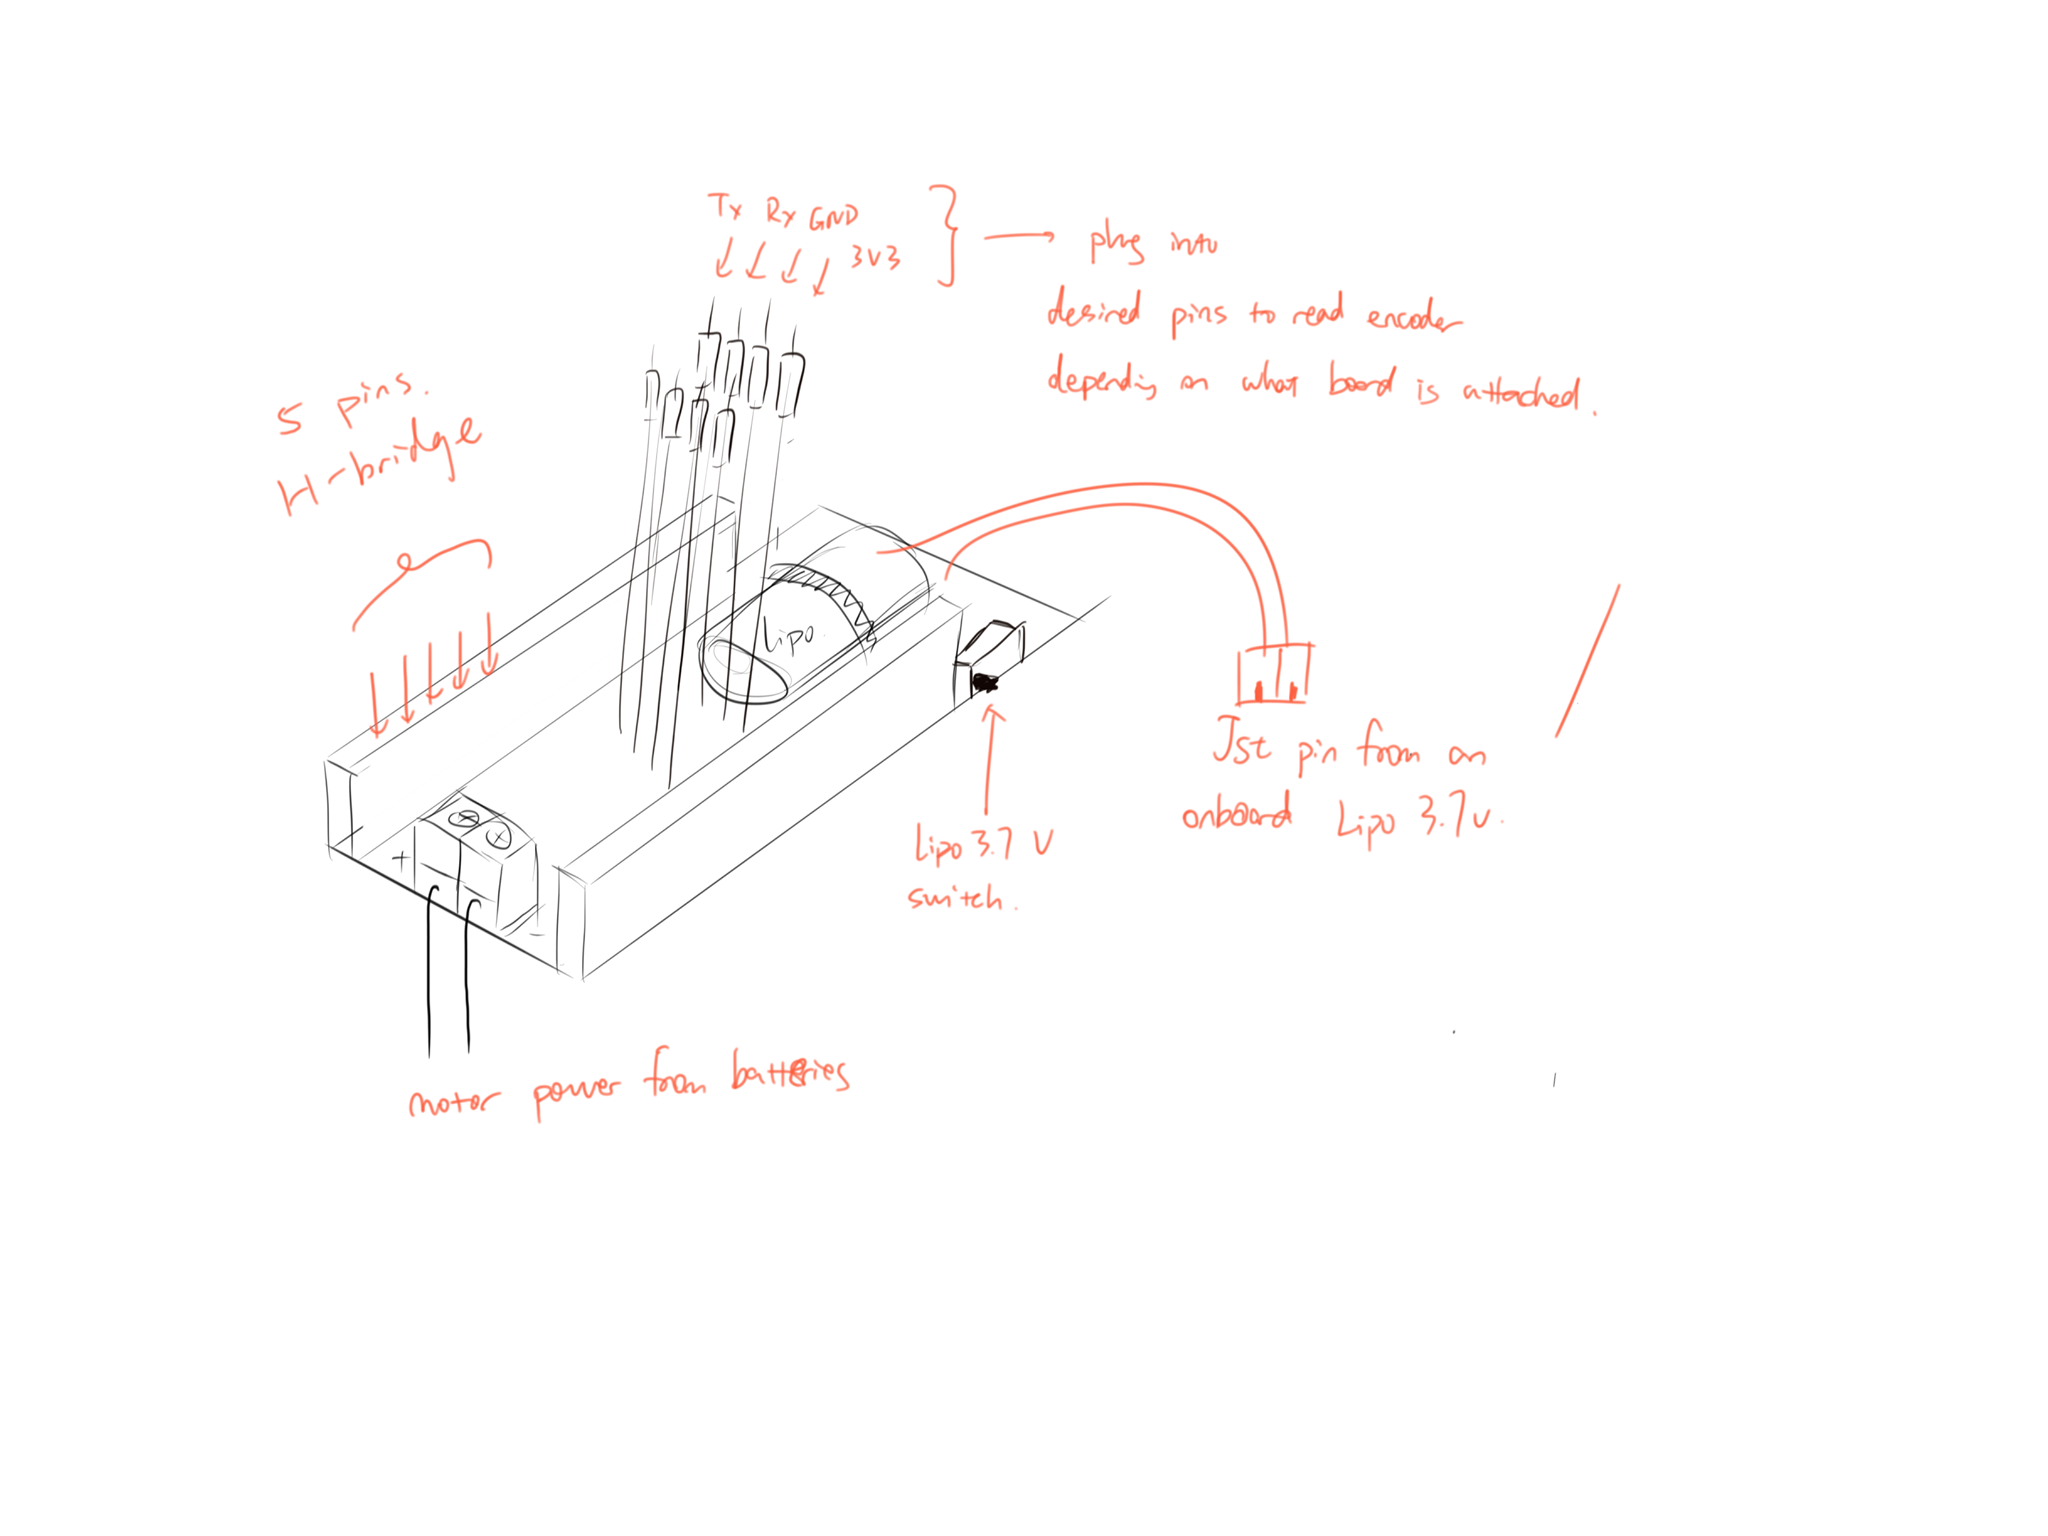 Tx Rx GND
3V3
plug into
desired pins to read encoder
depending on what board is attached.
5 pins.
H-bridge
Lipo
+
-
Lipo 3.7 V
switch.
Jst pin from an
onboard Lipo 3.7v.
motor power from batteries